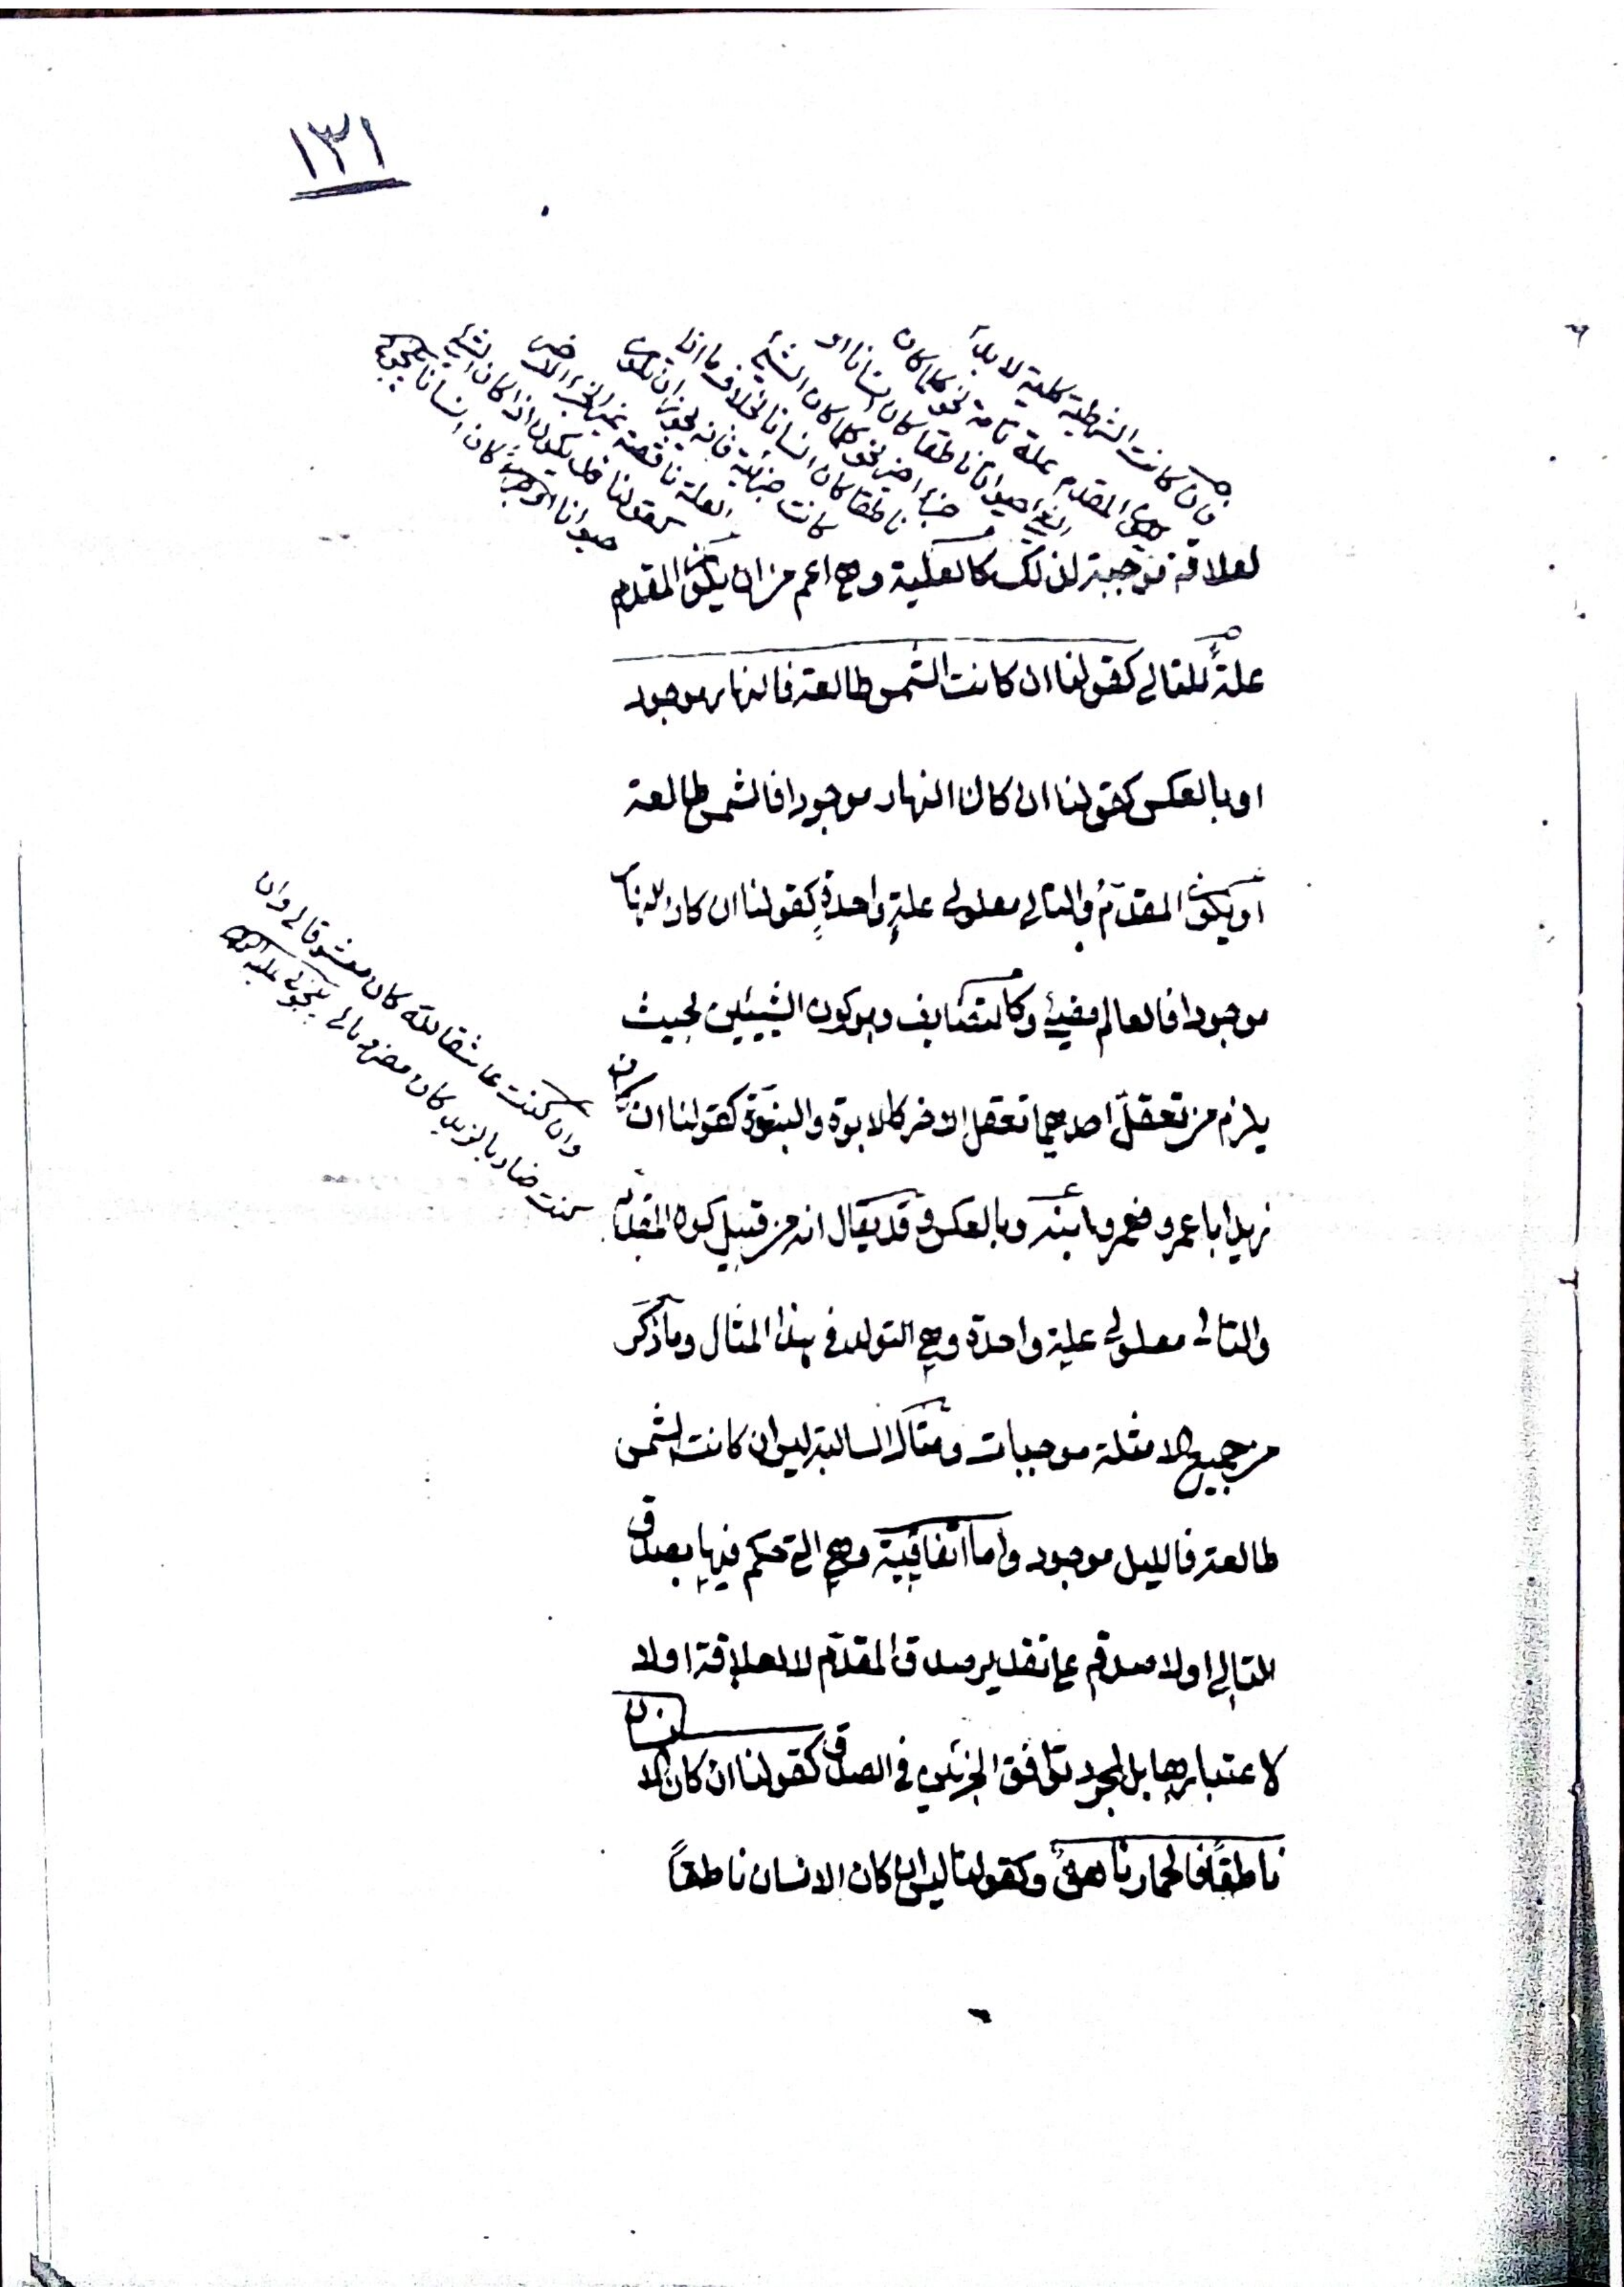 ١٣١
فان كانت الشرطية كلية لا بد
المقدم علة تامة نحو كلما كان
الشيء حيوانا ناطقا كان انسانا او
جزء اخير نحو كلما كان الشيء
ناطقا كان انسانا بخلاف ما اذا
كانت جزئية فانه يجوز ان تكون
العلة ناقصة غير الجزء الاخير
كقولنا قد يكون اذا كان الشيء
حيوانا كان انسانا
لعلاقة توجبه لذلك كالعلية وهي اعم من ان يكون المقدم
علةً للتالي كقولنا ان كانت الشمس طالعة فالنهار موجود
او بالعكس كقولنا ان كان النهار موجودا فالشمس طالعة
او يكون المقدّمُ والتالي معلولي علةٍ واحدةٍ كقولنا ان كان النهار
موجودا فالعالم مضيئ وكالتضايف وهو كون الشيئين بحيث
يلزم من تعقل احدهما تعقل الاخر كالابوة والبنوّة كقولنا ان كان
زيد ابا عمرو فعمرو ابنه وبالعكس وقد يقال انه من قبيل كون المقدم
والتالي معلولي علة واحدة وهي التولد في هذا المثال وما ذكر
من جميع الامثلة موجبات ومثال السالبة ليس ان كانت الشمس
طالعة فالليل موجود واما اتفاقية وهي التي حكم فيها بصدق
التالي اولا صدقه على تقدير صدق المقدّم لا لعلاقة اولا
لاعتبارها بل لمجرد توافق الجزئين في الصدق كقولنا ان كان الانسان
ناطقاً فالحمار ناهق وكقولنا ليس ان كان الانسان ناطقاً
وان كنت عاشقا لله كان معشوقا لي وان
كنت ضاربا لزيد كان مضروبا لي